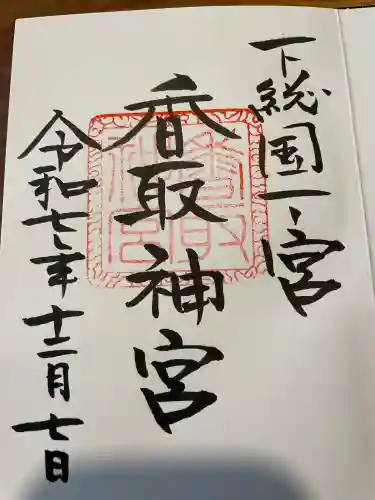 下総国一之宮
香取神宮
令和七年十二月七日